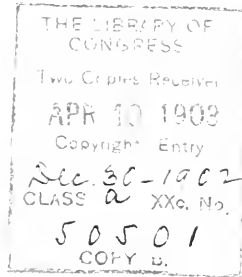 THE LIBRARY OF
CONGRESS
Two Copies Received
APR 10 1903
Copyright Entry
Dec. 30-1902
CLASS a XXc. No.
50501
COPY B.